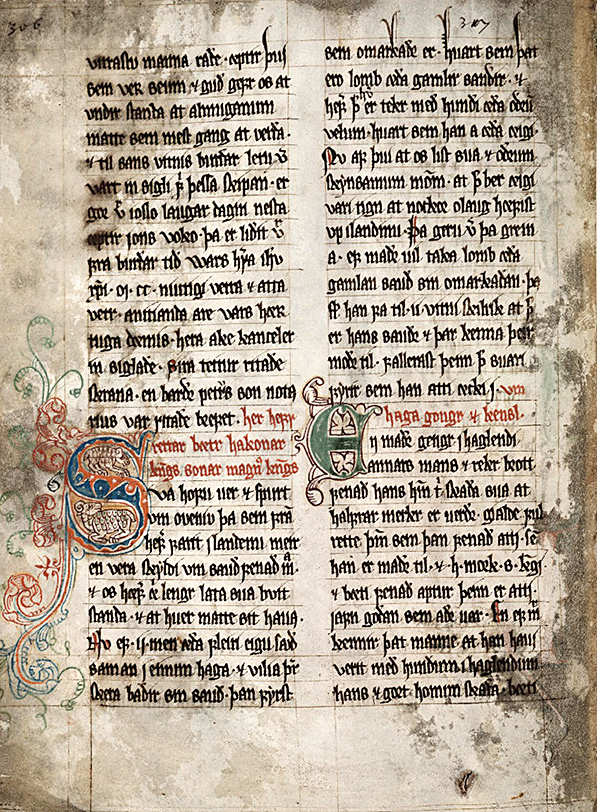 306
uitrastu manna rade · eptir þui
sem ver seum & gud gefr os at
vndir standa at almuganum
matte sem mest gang at verða ·
& til sans vitnis burðar letu v̅
vart in sigli f̅ þessa skipan · er
gor v̅ i oslo laugar dagin nesta
eptir jons voko þa er lidit v̅
fra burðar tid wars h̅ra ih̅u
xp̅i · m · cc · niutigi vetra & atta
vetr · a niutianda are vars herr
tuga demis · hera ake kanceler
in siglade · Sira teitur ritade
en barde petrs son nota
rius var ritade brefet · her hefr
rettar bøtr hakonar
k̅gs sonar magn̅ k̅gs
Sva hofu ver & spurt
vm oveniu þa sem fra̅
hefr farit slandemi meir
en vera skyldi vm saud fenad m̅ ·
& os hefr lengr lata sua buit
standa · & at huer matte sit haua ·
Nv ef · ij · men eda fleiri eigu saud
saman j einum haga · & vilia þir
skera badir sin saud · þan fyrst
307
sem omarkade er · huart sem þat
ero lomb eða gamlir saudir · &
hefr þ̅ er teker med hundi eða odru̅
velum · huart sem han a eða eigi ·
Nv af þui at os list sua & odrum
skynsamum mo̅m · at þ̅ ber eigi
vari tign at nockot olaug hefist
vp islandinu · þa geru v̅ þa grein
a · ef madr uil taka lomb eða
gamlan saud sin omarkadan · þa
skal han fa til · ij · vitni skilrik at þ̅
er hans saudr & þar kenna þeir
mode til · fallenast þeim þ̅ suari
fyrir sem han atti secki · vm
haga gongr & kensl ·
Ef madr gengr j haglendi
annars mans & reker brott
fenad hans hin t̅ skada sua at
halfrar merker er uerde · gialde ful
rette þim sem þan fenad atti · se
han er made til · & h · mork · s · k̅gi
& beti fenad aptur þeim er atti ·
jafn godan sem adr uar · En ef m̅
kennir þat manne at han haui
verit med hundum j haglendum
hans & gort honum skada · beri